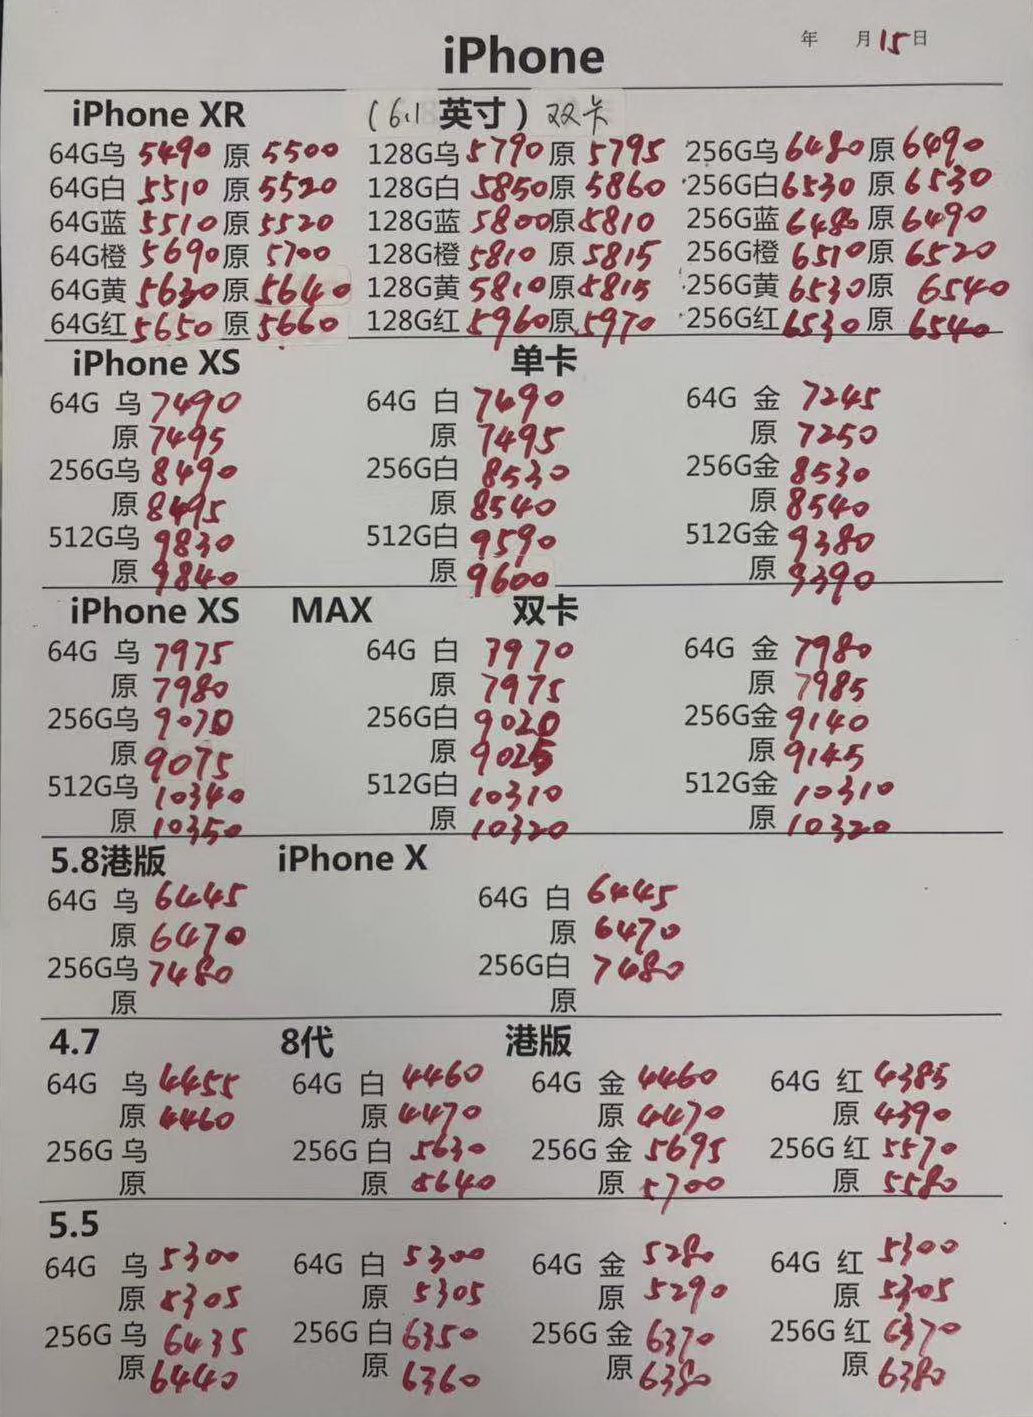 iPhone 年 月15日
iPhone XR (6.1 英寸) 双卡
64G乌 5490 原 5500 128G乌 5790 原 5795 256G乌 6480 原 6490
64G白 5510 原 5520 128G白 5850 原 5860 256G白 6530 原 6530
64G蓝 5510 原 5520 128G蓝 5800 原 5810 256G蓝 6480 原 6490
64G橙 5690 原 5700 128G橙 5810 原 5815 256G橙 6510 原 6520
64G黄 5630 原 5640 128G黄 5810 原 5815 256G黄 6530 原 6540
64G红 5650 原 5660 128G红 5960 原 5970 256G红 6530 原 6540
iPhone XS 单卡
64G 乌 7490 64G 白 7490 64G 金 7245
原 7495 原 7495 原 7250
256G乌 8490 256G白 8530 256G金 8530
原 8495 原 8540 原 8540
512G乌 9830 512G白 9590 512G金 9380
原 9840 原 9600 原 9390
iPhone XS MAX 双卡
64G 乌 7975 64G 白 7970 64G 金 7980
原 7980 原 7975 原 7985
256G乌 9070 256G白 9020 256G金 9140
原 9075 原 9025 原 9145
512G乌 10340 512G白 10310 512G金 10310
原 10350 原 10320 原 10320
5.8港版 iPhone X
64G 乌 6445 64G 白 6445
原 6470 原 6470
256G乌 7480 256G白 7480
原 原
4.7 8代 港版
64G 乌 4455 64G 白 4460 64G 金 4460 64G 红 4385
原 4460 原 4470 原 4470 原 4390
256G 乌 256G 白 5630 256G 金 5695 256G 红 5570
原 原 5640 原 5700 原 5580
5.5
64G 乌 5300 64G 白 5300 64G 金 5280 64G 红 5300
原 5305 原 5305 原 5290 原 5305
256G 乌 6435 256G 白 6350 256G 金 6370 256G 红 6370
原 6440 原 6360 原 6380 原 6380